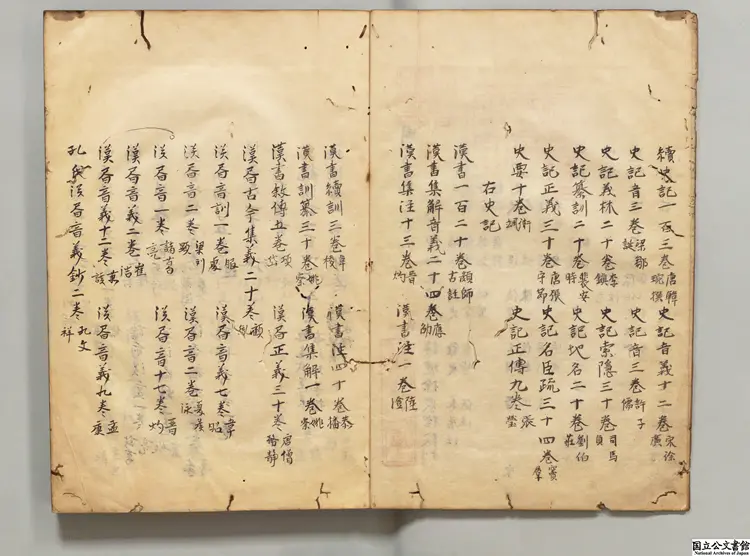 續史記一百三卷唐韓琬撰 史記音義十二卷宋徐廣
史記音三卷梁鄒誕 史記音三卷許子儒
史記義林二十卷李鎮 史記索隱三十卷司馬貞
史記纂訓二十卷裴安時 史記地名二十卷劉伯莊
史記正義三十卷唐張守節 史記名臣疏三十四卷竇羣
史要十卷衛颯 史記正傳九卷張瑩
右史記
漢書一百二十卷顏師古註
漢書集解音義二十四卷應劭
漢書集注十三卷晉灼 漢書注一卷薩瓚
漢書續訓三卷韋稜 漢書注四十卷
漢書訓纂三十卷姚察 漢書集解一卷姚察
漢書敘傳五卷項岱 漢書正義三十卷唐僧務靜
漢書古今集義二十卷顧胤
漢書音訓一卷服虔 漢書音義七卷韋昭
漢書音二卷梁劉顯 漢書音二卷夏侯泳
漢書音一卷諸葛亮 漢書音十七卷晉灼
漢書音義二卷崔浩
漢書音義十二卷萬該 漢書音義九卷孟康
孔氏漢書音義鈔二卷孔文祥
国立公文書館
National Archives of Japan